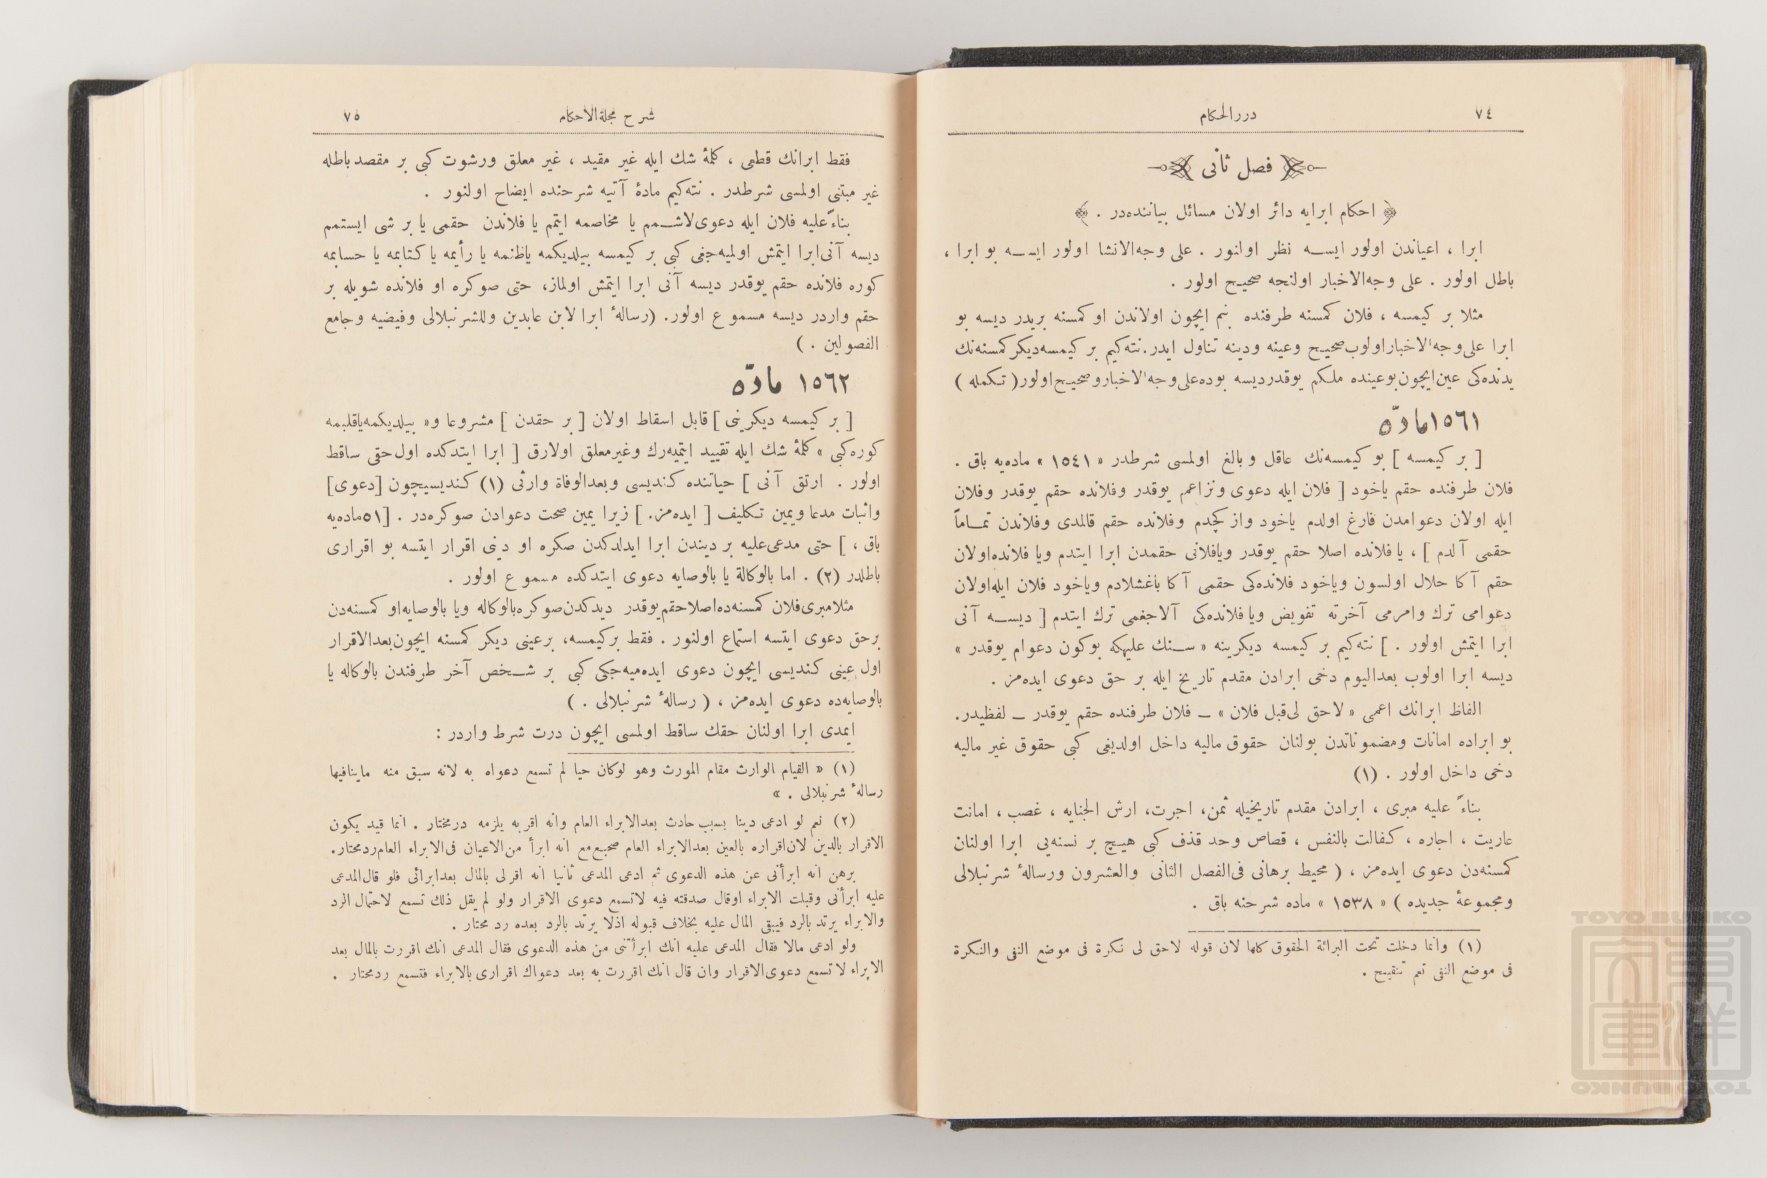 ٧٤
دررالحكام
فصل ثانى
﴿ احكام ابرايه دائر اولان مسائل بياننده‌در . ﴾
ابرا ، اعياندن اولور ايســه نظر اولنور . على وجه‌الانشا اولور ايســه بو ابرا ،
باطل اولور . على وجه‌الاخبار اولنجه صحيح اولور .
مثلا بر كيمسه ، فلان كمسنه طرفنده بنم ايچون اولاندن او كمسنه بريدر ديسه بو
ابرا على‌وجه‌الاخبار اولوب صحيح وعينه ودينه تناول ايدر. نته‌كيم بر كيمسه ديكر كمسنه‌نك
يدنده‌كى عين ايچون بوعينده ملكم يوقدر ديسه بوده على‌وجه‌الاخبار وصحيح اولور ( تكمله )
١٥٦١ مادّه
[ بر كيمسه ] بو كيمسه‌نك عاقل و بالغ اولمسى شرطدر « ١٥٤١ » ماده‌يه باق .
فلان طرفنده حقم ياخود [ فلان ايله دعوى ونزاعم يوقدر وفلانده حقم يوقدر وفلان
ايله اولان دعوامدن فارغ اولدم ياخود واز كچدم وفلانده حقم قالمدى وفلاندن تمــاماً
حقمى آلدم ] ، يا فلانده اصلا حقم يوقدر ويافلانى حقمدن ابرا ايتدم ويا فلانده‌اولان
حقم آكا حلال اولسون وياخود فلانده‌كى حقمى آكا باغشلادم وياخود فلان ايله‌اولان
دعوامى ترك وامرمى آخرته تفويض ويا فلانده‌كى آلاجغمى ترك ايتدم [ ديســه آنى
ابرا ايتمش اولور . ] نته‌كيم بر كيمسه ديكرينه « ســنك عليهكه بوكون دعوام يوقدر »
ديسه ابرا اولوب بعداليوم دخى ابرادن مقدم تاريخ ايله بر حق دعوى ايده‌مز .
الفاظ ابرانك اعمى « لاحق لى‌قبل فلان » ــ فلان طرفنده حقم يوقدر ــ لفظيدر.
بو ابراده امانات ومضموناتدن بولنان حقوق ماليه داخل اولديغى كبى حقوق غير ماليه
دخى داخل اولور . (١)
بناءً عليه مبرى ، ابرادن مقدم تاريخيله ثمن، اجرت، ارش الجنايه ، غصب ، امانت
عاريت ، اجاره ، كفالت بالنفس ، قصاص وحد قذف كبى هيچ بر نسنه‌يى ابرا اولنان
كمسنه‌دن دعوى ايده‌مز ، ( محيط برهانى فى‌الفصل الثانى والعشرون ورسالهٔ شرنبلالى
ومجموعهٔ جديده ) « ١٥٣٨ » ماده شرحنه باق .
(١) وانما دخلت تحت البرائة الحقوق كلها لان قوله لاحق لى نكرة فى موضع النفى والنكرة
فى موضع النفى تعم تنقيح .
شرح مجلةالاحكام
٧٥
فقط ابرانك قطعى ، كلمهٔ شك ايله غير مقيد ، غير معلق ورشوت كبى بر مقصد باطله
غير مبتنى اولمسى شرطدر . نته‌كيم مادهٔ آتيه شرحنده ايضاح اولنور .
بناءًعليه فلان ايله دعوى‌لاشــمم يا مخاصمه ايتمم يا فلاندن حقمى يا بر شى ايستمم
ديسه آنى‌ابرا ايتمش اولميه‌جغى كبى بر كيمسه بيلديكمه ياظنمه يا رأيمه يا كتابمه يا حسابمه
كوره فلانده حقم يوقدر ديسه آنى ابرا ايتمش اولماز، حتى صوكره او فلانده شويله بر
حقم واردر ديسه مسموع اولور. (رسالهٔ ابرا لابن عابدين وللشرنبلالى وفيضيه وجامع
الفصولين . )
١٥٦٢ مادّه
[ بر كيمسه ديكرينى ] قابل اسقاط اولان [ بر حقدن ] مشروعا و« بيلديكمه‌ياقلبمه
كوره‌كبى » كلمهٔ شك ايله تقييد ايتميه‌رك وغيرمعلق اولارق [ ابرا ايتدكده اول‌حقى ساقط
اولور . ارتق آنى ] حياتنده كنديسى وبعدالوفاة وارثى (١) كنديسيچون [دعوى]
واثبات مدعا ويمين تكليف [ ايده‌مز. ] زيرا يمين صحت دعوادن صوكره‌در . [٥١ماده‌يه
باق ، ] حتى مدعى‌عليه بر ديندن ابرا ايدلدكدن صكره او دينى اقرار ايتسه بو اقرارى
باطلدر (٢) . اما بالوكالة يا بالوصايه دعوى ايتدكده مسموع اولور .
مثلا مبرى‌فلان كمسنه‌ده‌اصلاحقم‌يوقدر ديدكدن‌صوكره‌بالوكاله ويا بالوصايه‌او كمسنه‌دن
برحق دعوى ايتسه استماع اولنور . فقط بركيمسه، برعينى ديكر كمسنه ايچون‌بعدالاقرار
اول عينى كنديسى ايچون دعوى ايده‌ميه‌جكى كبى بر شــخص آخر طرفندن بالوكاله يا
بالوصايه‌ده دعوى ايده‌مز ، ( رسالهٔ شرنبلالى . )
ايمدى ابرا اولنان حقك ساقط اولمسى ايچون درت شرط واردر :
(١) « القيام الوارث مقام المورث وهو لوكان حيا لم تسمع دعواه به لانه سبق منه ماينافيها
رسالهٔ شرنبلالى . »
(٢) نعم لو ادعى دينا بسبب حادث بعدالابراء العام وانه اقربه يلزمه درمختار . انما قيد يكون
الاقرار بالدين لان‌اقراره بالعين بعدالابراء العام صحيح‌مع انه ابرأ من‌الاعيان فى‌الابراء العام‌ردمختار.
برهن انه ابرأنى عن هذه الدعوى ثم ادعى المدعى ثانيا انه اقرلى بالمال بعدابرائى فلو قال‌المدعى
عليه ابرأنى وقبلت الابراء اوقال صدقته فيه لاتسمع دعوى الاقرار ولو لم يقل ذلك تسمع لاحتمال الرد
والابراء يرتد بالرد فيبقى المال عليه بخلاف قبوله اذلا يرتد بالرد بعده رد مختار .
ولو ادعى مالا فقال المدعى عليه انك ابرأتنى من هذه الدعوى فقال المدعى انك اقررت بالمال بعد
الابراء لا تسمع دعوى‌الاقرار وان قال انك اقررت به بعد دعواك اقرارى بالابراء فتسمع ردمختار .
TOYO BUNKO